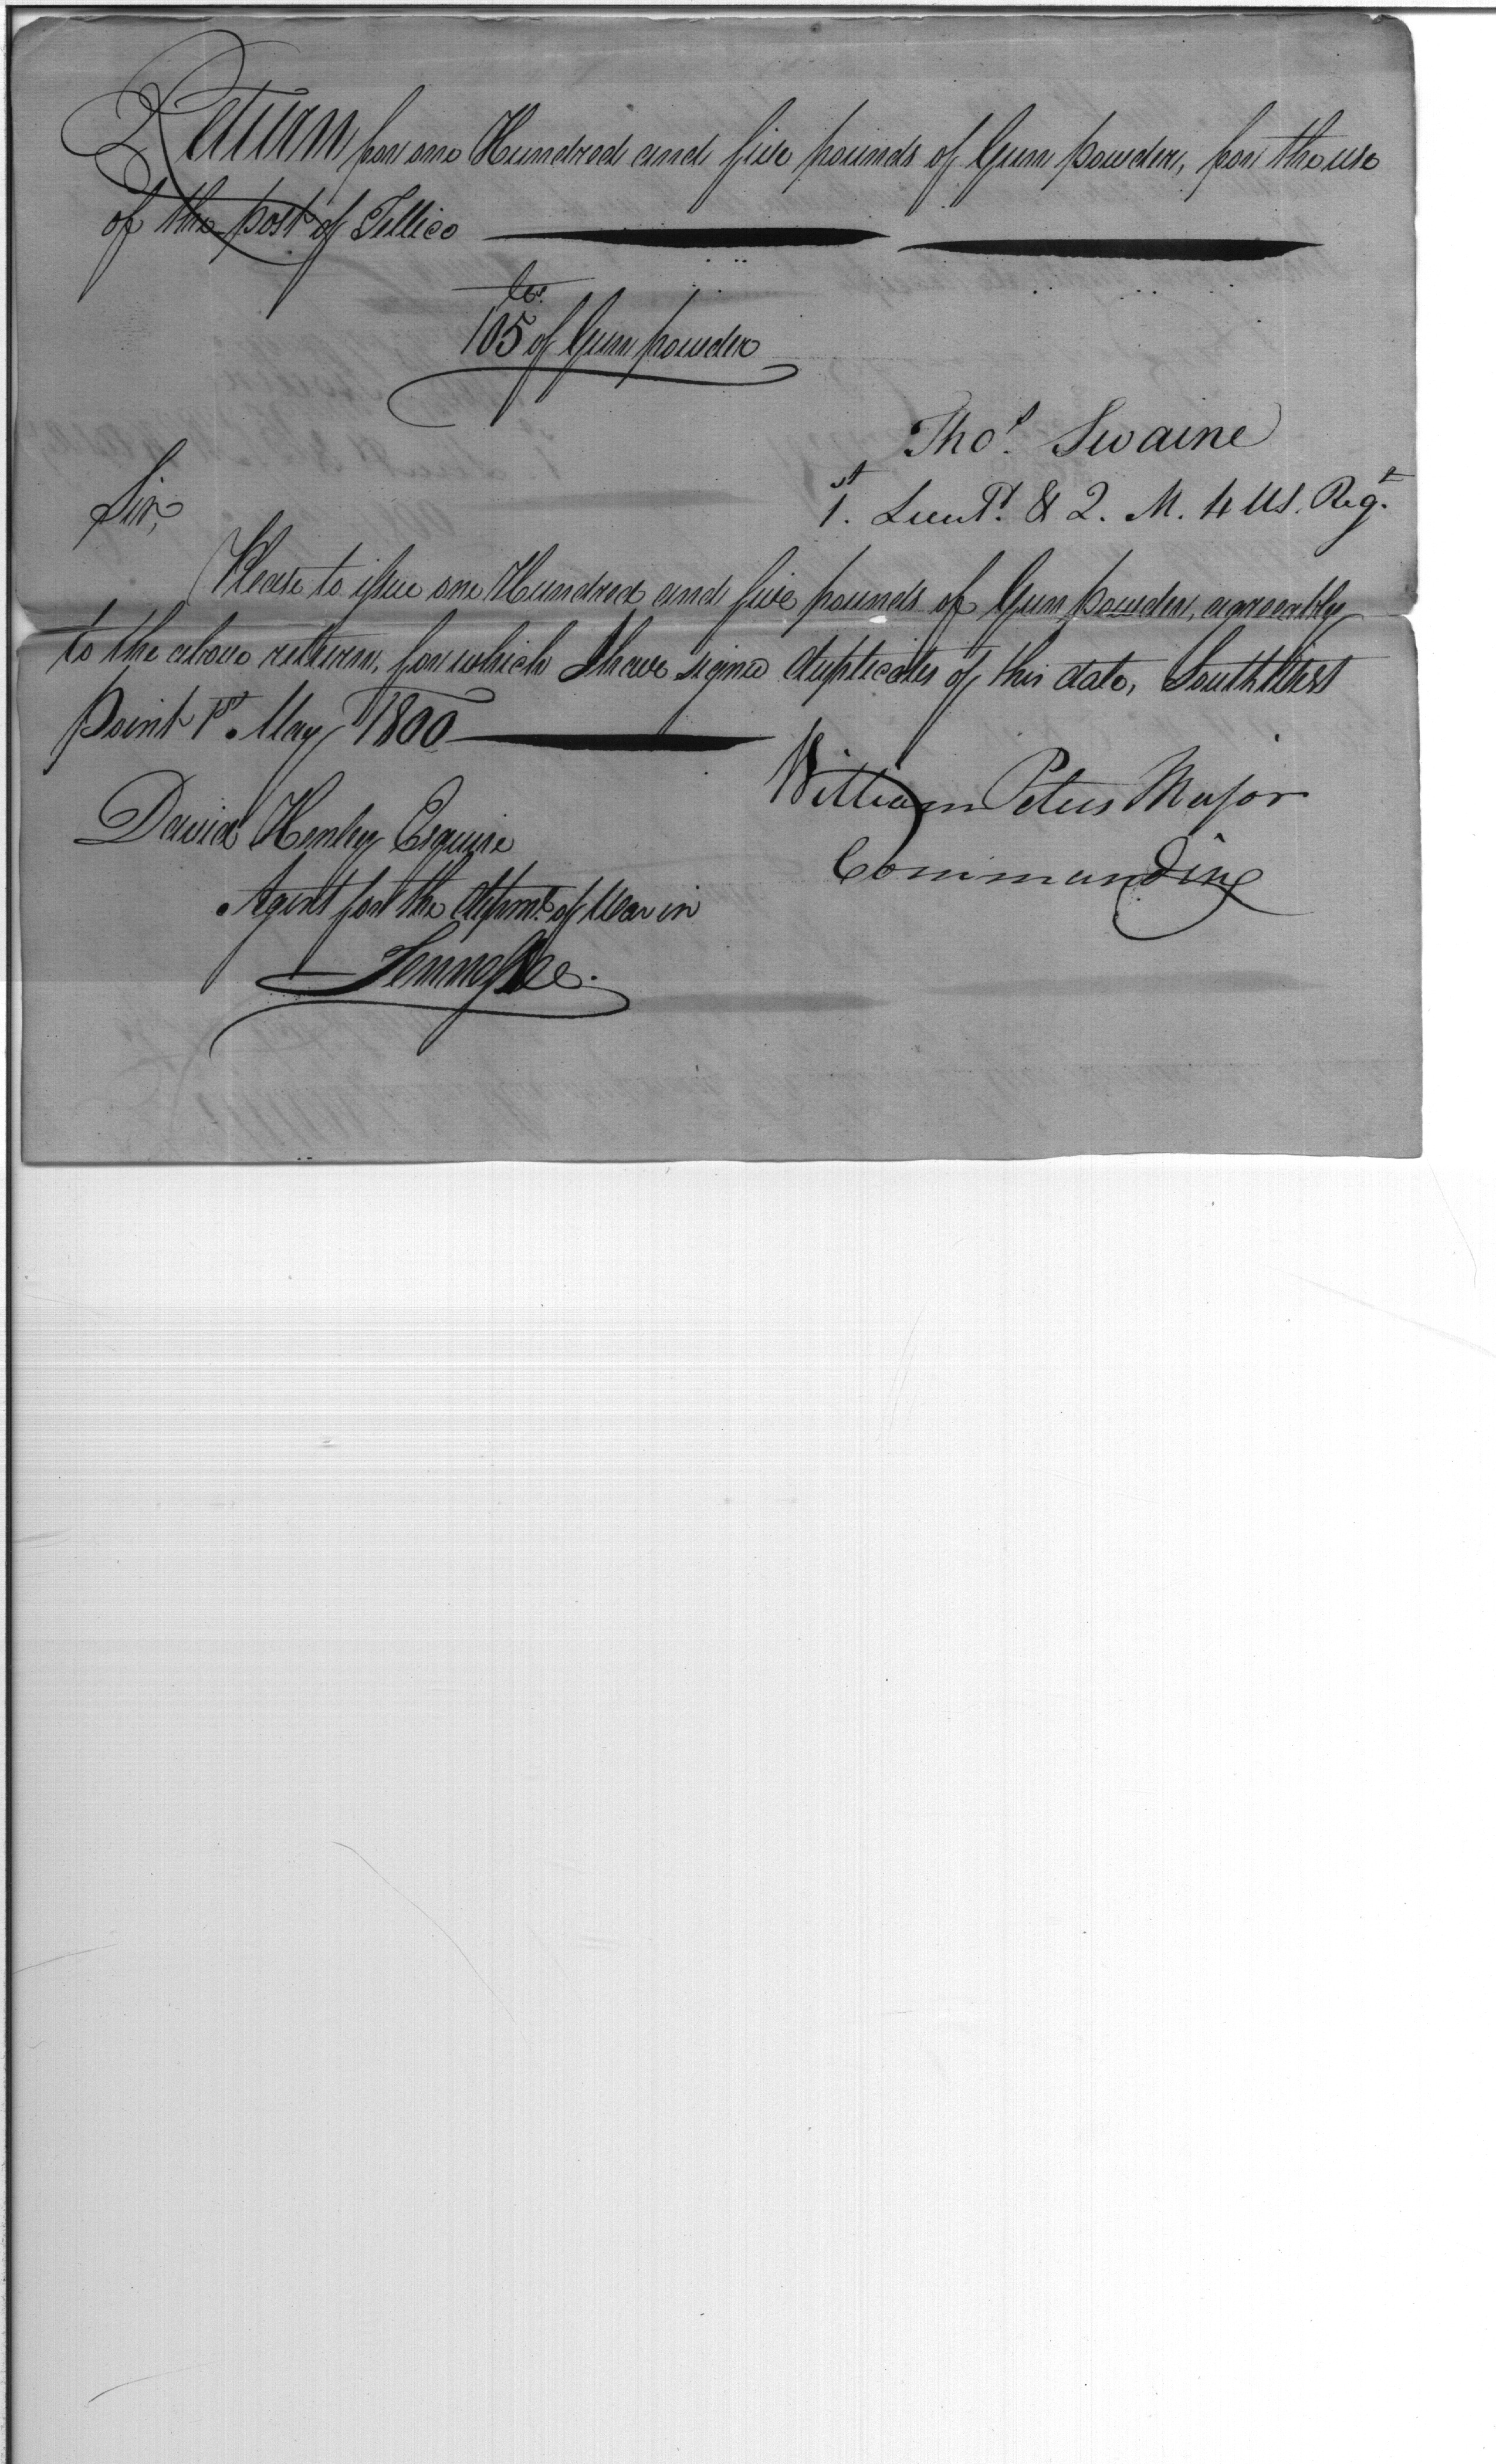 Return for one Hundred and five pounds of Gun powder, for the use
of the post of Tellico
lbs.
105 of Gun powder
Thos. Swaine
1st. Lieut. & Q. M. 4 U.S. Regt.
Sir,
Please to issue one Hundred and five pounds of Gun powder, agreeably
to the above return, for which I have signed duplicates of this date, South West
point 1st. May 1800
William Peters Major
Commanding
David Henley Esquire
Agent for the Depmt. of War in
Tennessee.